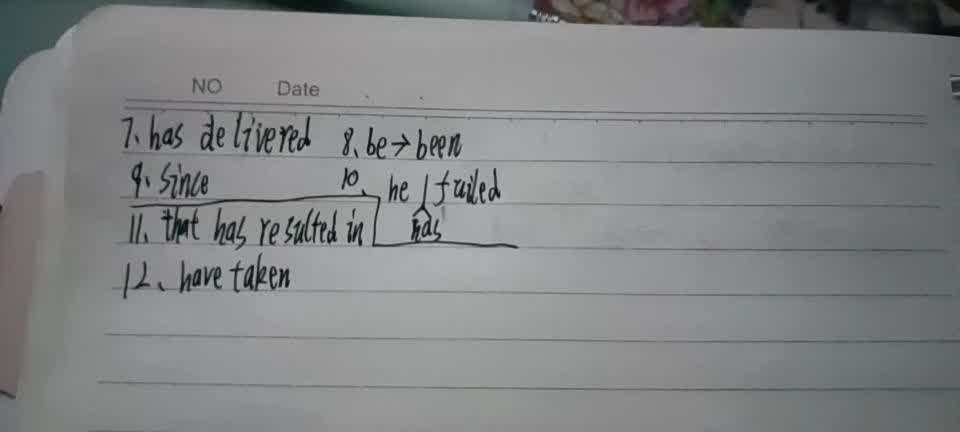 NO Date
7、has delivered 8、be→been
9、since 10、he failed
has
11、that has resulted in
12、have taken